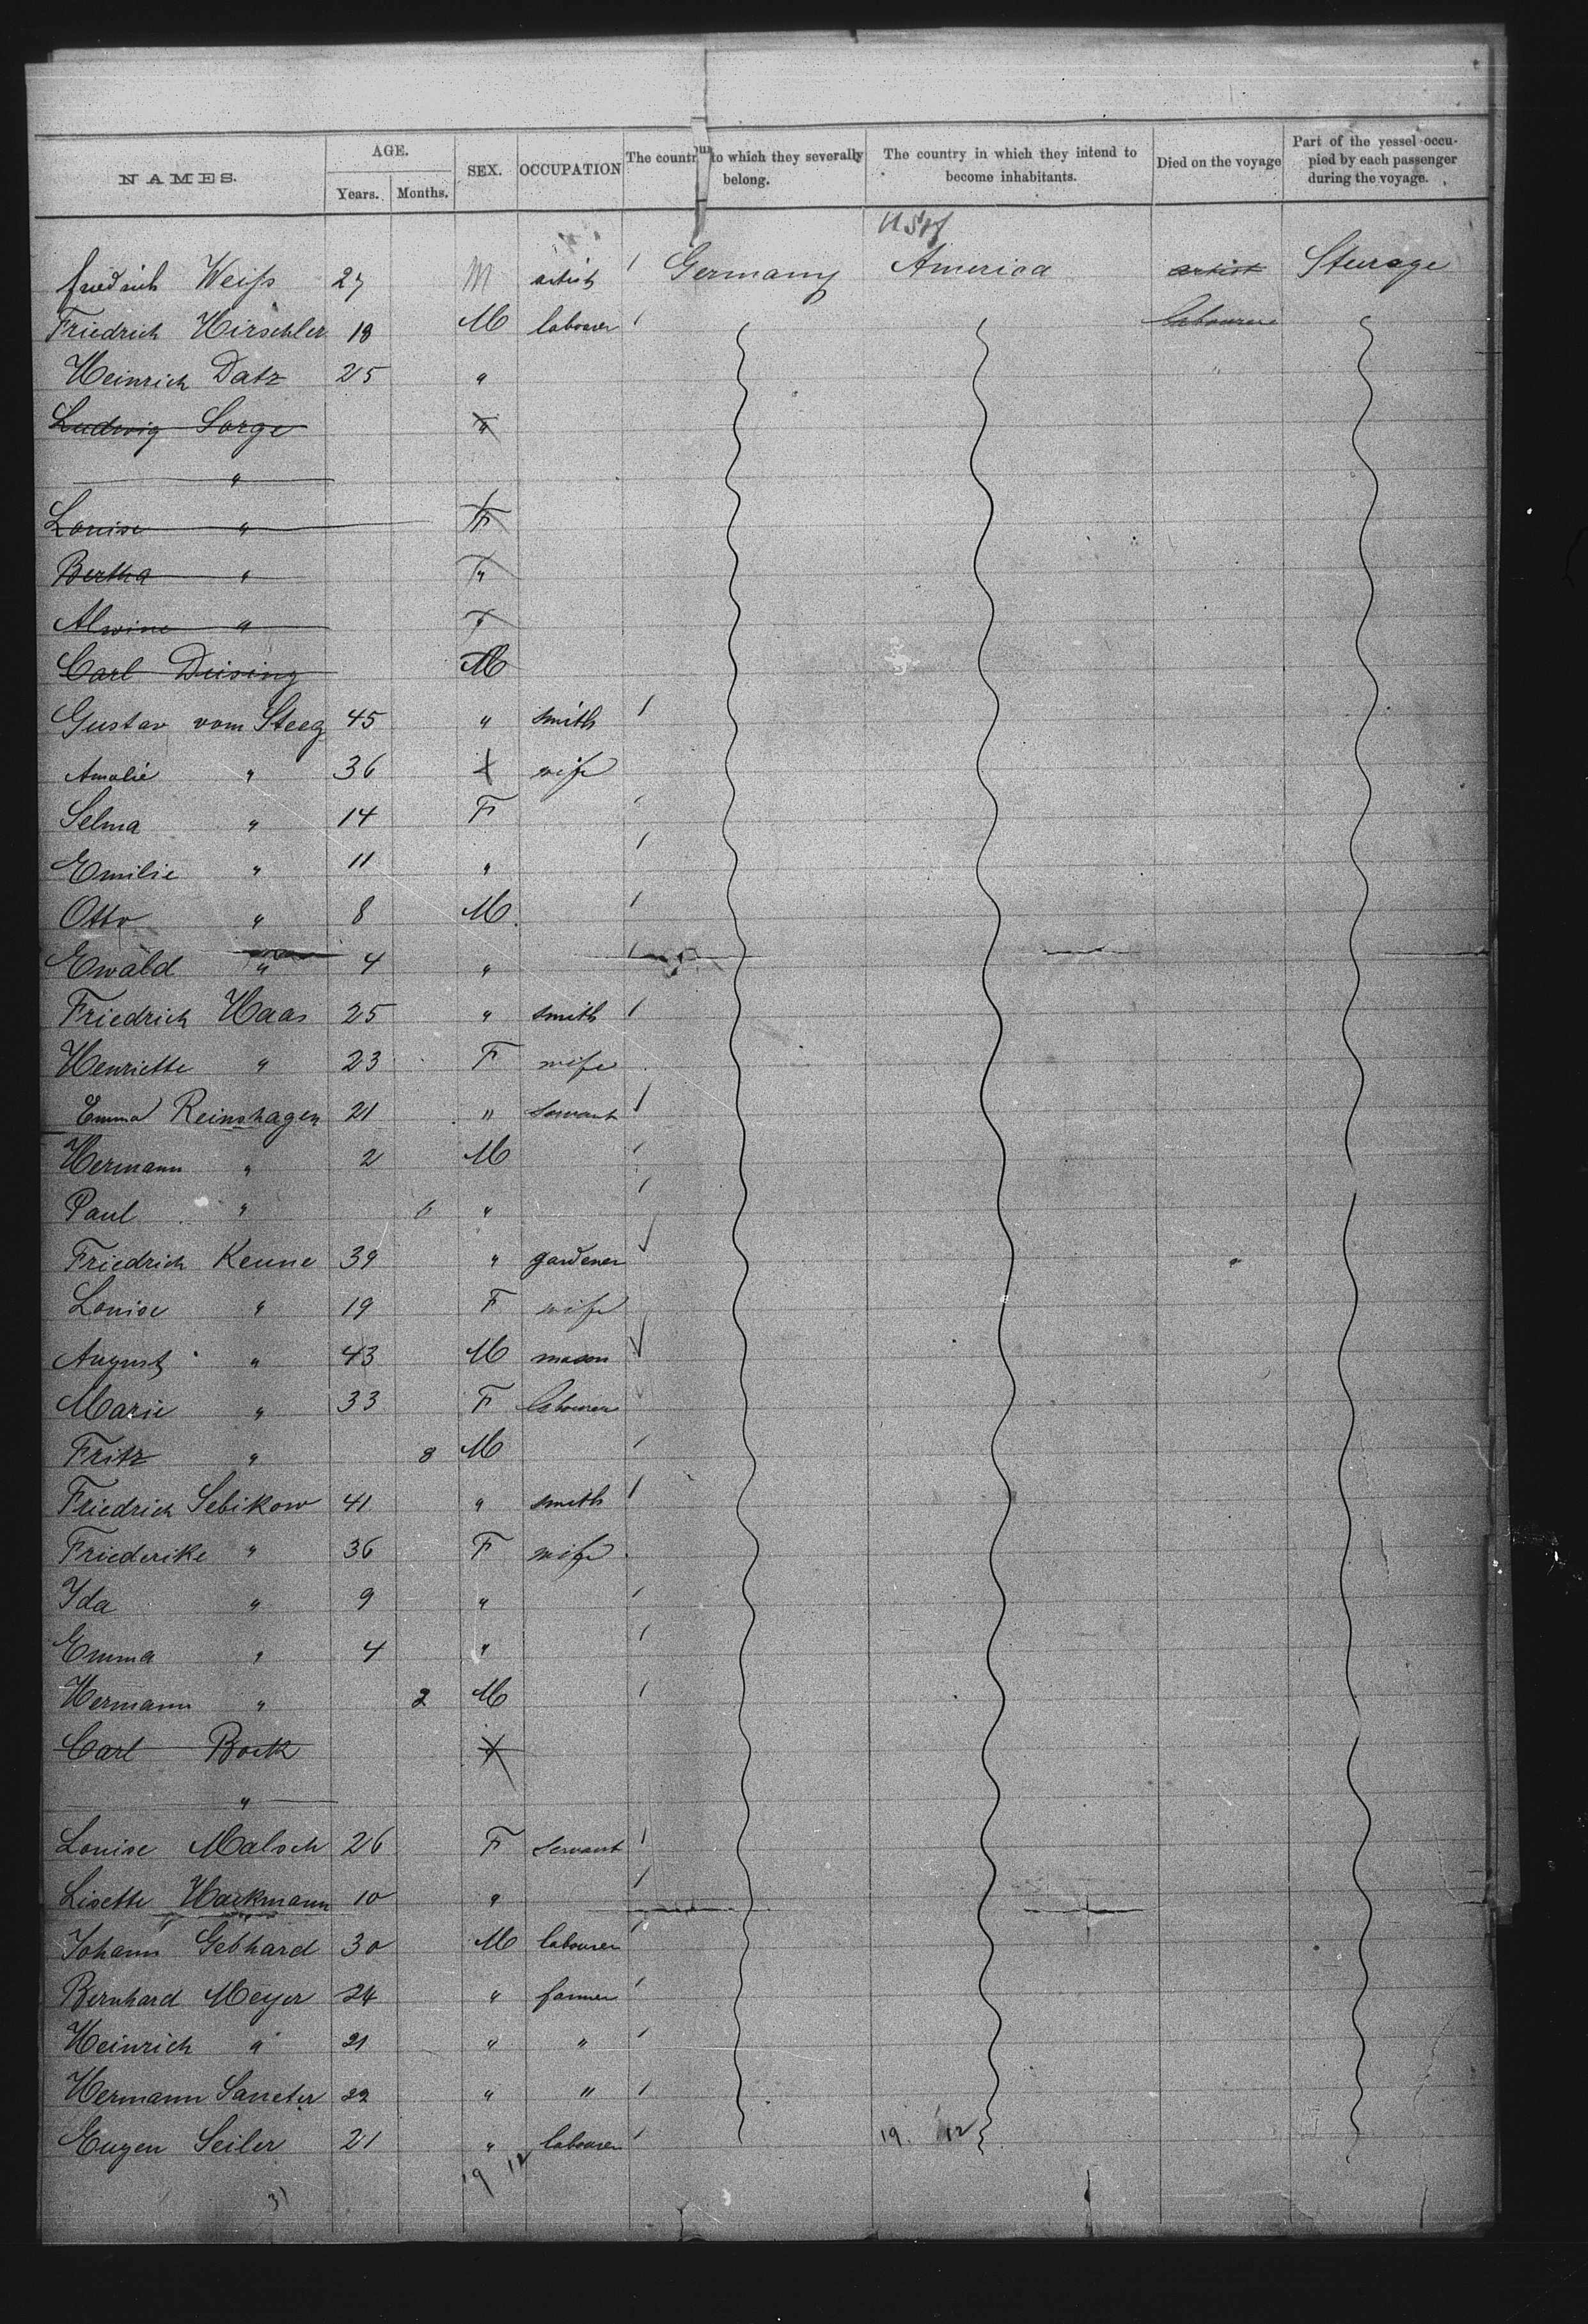 NAMES. AGE. SEX. OCCUPATION The country to which they severally belong. The country in which they intend to become inhabitants. Died on the voyage Part of the vessel occupied by each passenger during the voyage.
Years. Months.
USA
Friedrich Weiss 27 M artist / Germany America artist Steerage
Friedrich Hirschler 18 M labourer / labourer
Heinrich Datz 25 "
Ludwig Sorge "
"
Louise " F
Bertha " "
Alwine "
Carl Deising M
Gustav vom Steeg 45 " smith /
Amalie " 36 wife
Selma " 14 F /
Emilie " 11 " /
Otto " 8 M /
Ewald " 4 " /
Friedrich Haas 25 " smith /
Henriette " 23 F wife
Emma Reinshagen 21 " servant /
Hermann " 2 M /
Paul " 6 " /
Friedrich Keune 39 " gardener ✓
Louise " 19 F wife
August " 43 M mason ✓
Marie " 33 F labourer ✓
Fritz " 8 M /
Friedrich Sebikow 41 " smith /
Friederike " 36 F wife
Ida " 9 " /
Emma " 4 " /
Hermann " 2 M /
Carl Bock
"
Louise Malsch 26 F servant /
Lisette Hackmann 10 " /
Johann Gebhard 30 M labourer /
Bernhard Meyer 24 " farmer /
Heinrich " 21 " " /
Hermann 22 " " /
Eugen Seiler 21 " labourer / 19 12
19 12
31